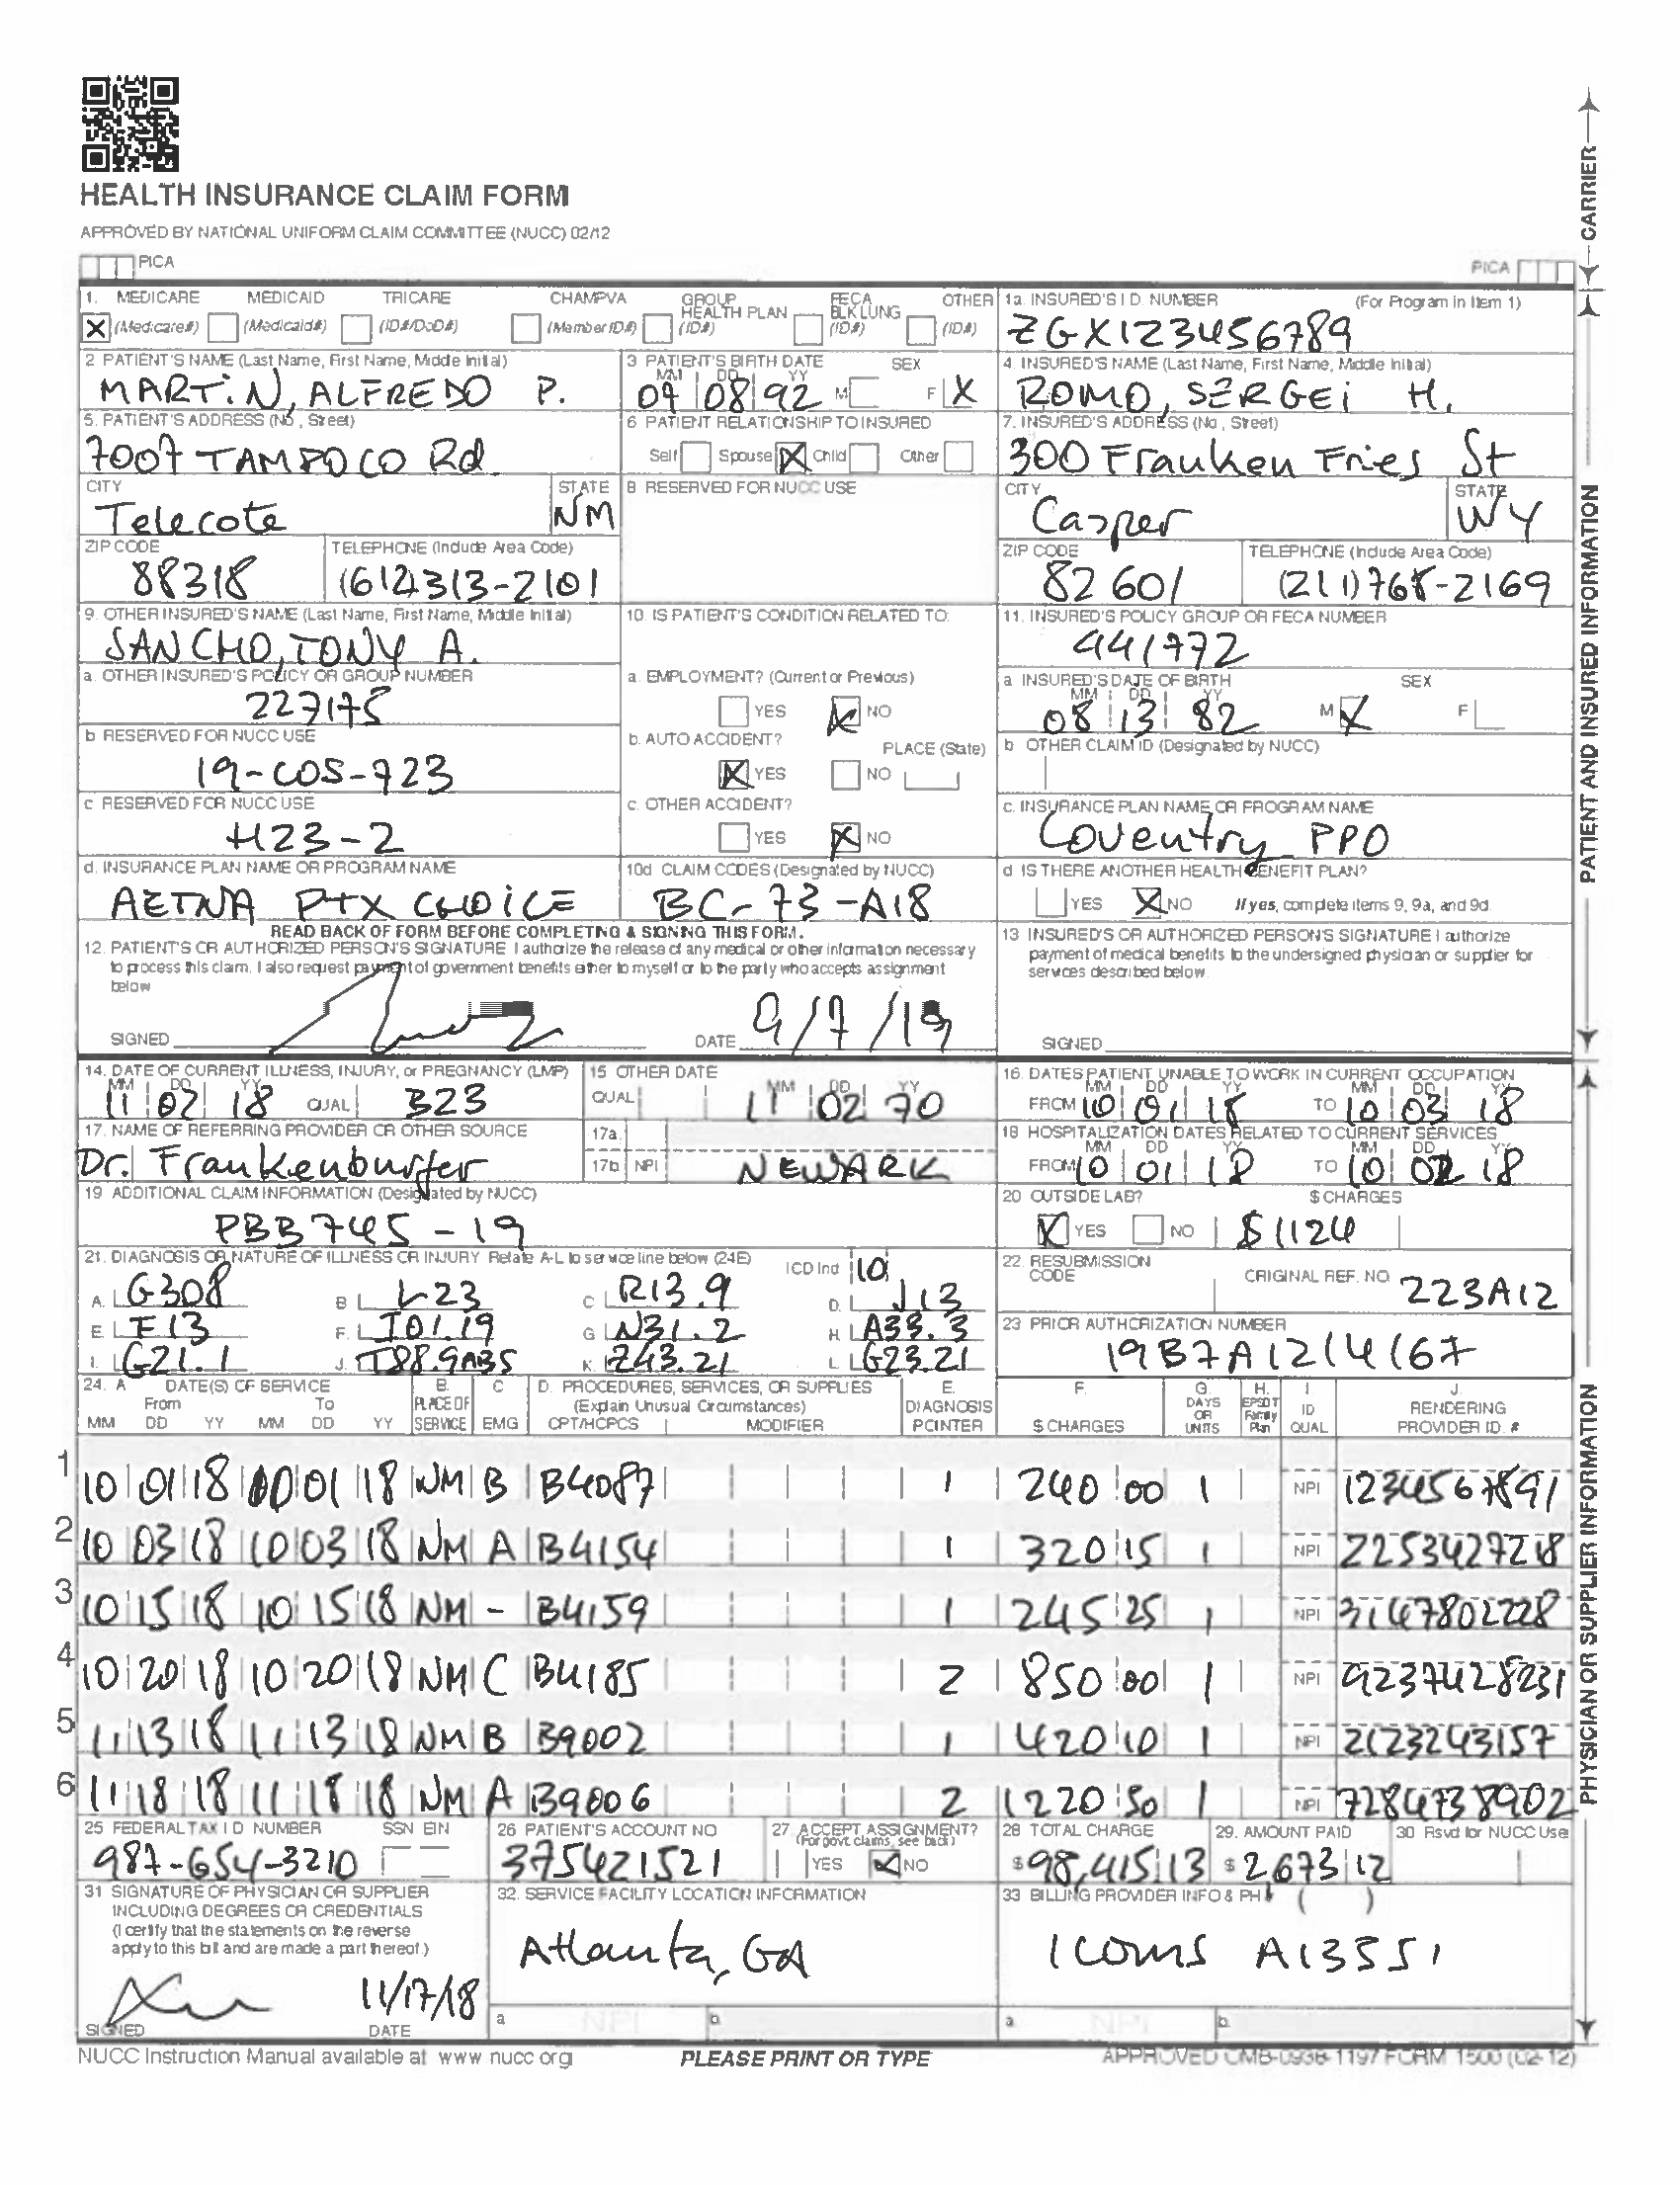 HEALTH INSURANCE CLAIM FORM
APPROVED BY NATIONAL UNIFORM CLAIM COMMITTEE (NUCC) 02/12
PICA PICA
CARRIER
1. MEDICARE MEDICAID TRICARE CHAMPVA GROUP HEALTH PLAN FECA BLK LUNG OTHER
X (Medicare#) (Medicaid#) (ID#/DoD#) (Member ID#) (ID#) (ID#) (ID#)
1a. INSURED'S I.D. NUMBER (For Program in Item 1)
ZGX123456789
2 PATIENT'S NAME (Last Name, First Name, Middle Initial)
MARTIN, ALFREDO P.
3 PATIENT'S BIRTH DATE SEX
MM DD YY
07 08 92 M F X
4. INSURED'S NAME (Last Name, First Name, Middle Initial)
ROMO, SERGEI H.
5. PATIENT'S ADDRESS (No, Street)
7007 TAMPOCO Rd
6 PATIENT RELATIONSHIP TO INSURED
Self Spouse X Child Other
7. INSURED'S ADDRESS (No, Street)
300 Franken Fries St
CITY STATE
Telecote NM
8 RESERVED FOR NUCC USE
CITY STATE
Casper WY
ZIP CODE TELEPHONE (Include Area Code)
88318 (612)313-2101
ZIP CODE TELEPHONE (Include Area Code)
82601 (211)768-2169
9. OTHER INSURED'S NAME (Last Name, First Name, Middle Initial)
SANCHO, TONY A.
10. IS PATIENT'S CONDITION RELATED TO:
11. INSURED'S POLICY GROUP OR FECA NUMBER
441772
a. OTHER INSURED'S POLICY OR GROUP NUMBER
227175
a. EMPLOYMENT? (Current or Previous)
YES X NO
a INSURED'S DATE OF BIRTH SEX
MM DD YY
08 13 82 M X F
b RESERVED FOR NUCC USE
19-COS-723
b. AUTO ACCIDENT? PLACE (State)
X YES NO
b OTHER CLAIM ID (Designated by NUCC)
c RESERVED FOR NUCC USE
H23-2
c. OTHER ACCIDENT?
YES X NO
c. INSURANCE PLAN NAME OR PROGRAM NAME
Coventry PPO
d. INSURANCE PLAN NAME OR PROGRAM NAME
AETNA PTX CHOICE
10d CLAIM CODES (Designated by NUCC)
BC-73-A18
d IS THERE ANOTHER HEALTH BENEFIT PLAN?
YES X NO If yes, complete items 9, 9a, and 9d.
READ BACK OF FORM BEFORE COMPLETING & SIGNING THIS FORM.
12. PATIENT'S OR AUTHORIZED PERSON'S SIGNATURE I authorize the release of any medical or other information necessary
to process this claim. I also request payment of government benefits either to myself or to the party who accepts assignment
below
SIGNED DATE 9/7/19
13 INSURED'S OR AUTHORIZED PERSON'S SIGNATURE I authorize
payment of medical benefits to the undersigned physician or supplier for
services described below.
SIGNED
PATIENT AND INSURED INFORMATION
14. DATE OF CURRENT ILLNESS, INJURY, or PREGNANCY (LMP)
MM DD YY
11 02 18 QUAL 323
15 OTHER DATE
QUAL MM DD YY
11 02 70
16. DATES PATIENT UNABLE TO WORK IN CURRENT OCCUPATION
MM DD YY MM DD YY
FROM 10 01 18 TO 10 03 18
17. NAME OF REFERRING PROVIDER OR OTHER SOURCE
Dr. Frankenburfer
17a.
17b NPI NEWARK
18 HOSPITALIZATION DATES RELATED TO CURRENT SERVICES
MM DD YY MM DD YY
FROM 10 01 18 TO 10 02 18
19 ADDITIONAL CLAIM INFORMATION (Designated by NUCC)
PBB745-19
20 OUTSIDE LAB? $ CHARGES
X YES NO $1124
21. DIAGNOSIS OR NATURE OF ILLNESS OR INJURY Relate A-L to service line below (24E) ICD Ind 10
A. G308 B L23 C R13.9 D. J13
E. F13 F. I01.19 G N31.2 H. A33.3
I. G21.1 J. T88.9AB5 K. Z43.21 L. G23.21
22. RESUBMISSION CODE ORIGINAL REF. NO.
223A12
23 PRIOR AUTHORIZATION NUMBER
19B7A1214167
24. A DATE(S) OF SERVICE B. PLACE OF SERVICE C EMG D. PROCEDURES, SERVICES, OR SUPPLIES E. DIAGNOSIS POINTER F. $ CHARGES G. DAYS OR UNITS H. EPSDT Family Plan I ID QUAL J. RENDERING PROVIDER ID. #
From To (Explain Unusual Circumstances)
MM DD YY MM DD YY CPT/HCPCS MODIFIER
1 10 01 18 10 01 18 NM B B4087 1 240 00 1 NPI 1234567891
2 10 03 18 10 03 18 NM A B4154 1 320 15 1 NPI 2253427218
3 10 15 18 10 15 18 NM - B4159 1 245 25 1 NPI 3147802228
4 10 20 18 10 20 18 NM C B4185 2 850 00 1 NPI 9237428231
5 11 13 18 11 13 18 NM B B9002 1 420 10 1 NPI 2123243157
6 11 18 18 11 18 18 NM A B9006 2 1220 50 1 NPI 7284738902
25 FEDERAL TAX I.D NUMBER SSN EIN
987-654-3210
26 PATIENT'S ACCOUNT NO
375421521
27 ACCEPT ASSIGNMENT?
(For govt. claims, see back)
YES X NO
28 TOTAL CHARGE
$ 98,415 13
29. AMOUNT PAID
$ 2,673 12
30 Rsvd for NUCC Use
31 SIGNATURE OF PHYSICIAN OR SUPPLIER
INCLUDING DEGREES OR CREDENTIALS
(I certify that the statements on the reverse
apply to this bill and are made a part thereof.)
11/17/18
SIGNED DATE
32. SERVICE FACILITY LOCATION INFORMATION
Atlanta, GA
a NPI b.
33 BILLING PROVIDER INFO & PH # ( )
1 Coms A13551
a. NPI b.
PHYSICIAN OR SUPPLIER INFORMATION
NUCC Instruction Manual available at www nucc org PLEASE PRINT OR TYPE APPROVED OMB-0938-1197 FORM 1500 (02-12)